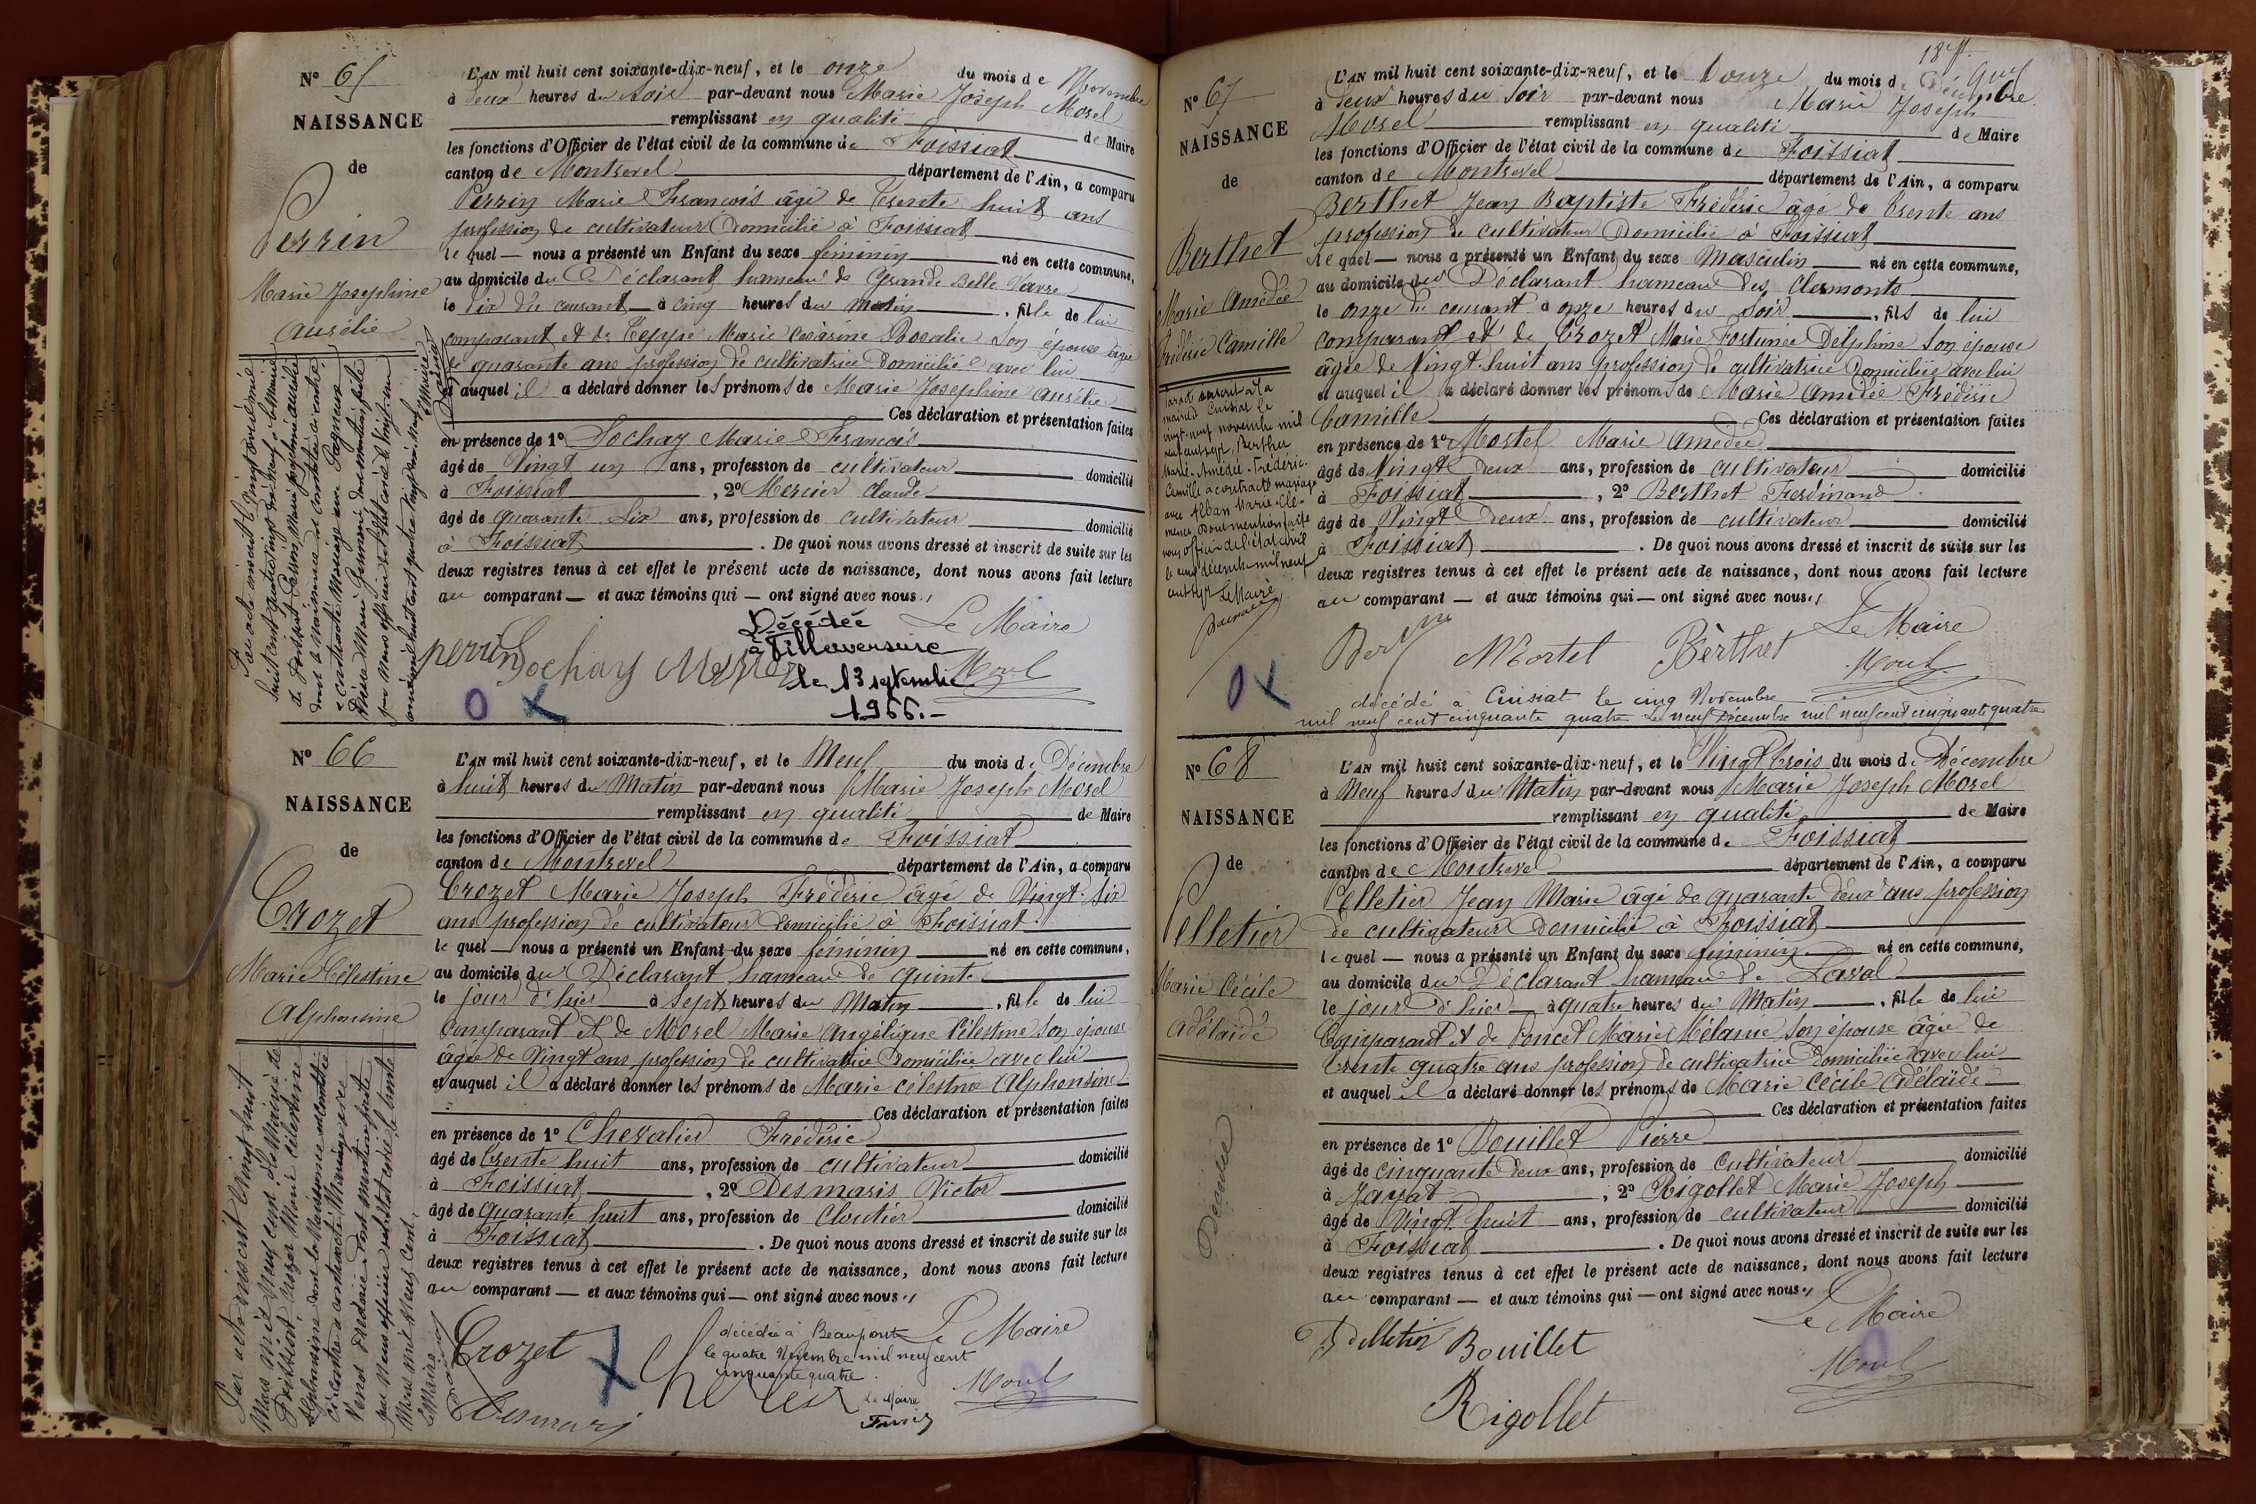 N° 65
NAISSANCE
de
Perrin
Marie Joséphine
Aurélie
L'AN mil huit cent soixante-dix-neuf, et le onze du mois de Novembre
à deux heures du soir par-devant nous Marie Joseph Morel
remplissant en qualité de Maire
les fonctions d'Officier de l'état civil de la commune de Foissiat
canton de Montrevel département de l'Ain, a comparu
Perrin Marie François âgé de trente huit ans
profession de cultivateur domicilié à Foissiat
lequel — nous a présenté un Enfant du sexe féminin né en cette commune,
au domicile du Déclarant hameau de Grande Belle Vavre
le dix du courant à cinq heures du matin, fille de lui
comparant et de Teppe Marie Césarine Rosalie son épouse âgée
de quarante ans profession de cultivatrice domiciliée avec lui
et auquel il a déclaré donner les prénoms de Marie Joséphine Aurélie
Ces déclaration et présentation faites
en présence de 1° Sochay Marie François
âgé de Vingt un ans, profession de cultivateur domicilié
à Foissiat, 2° Mercier Claude
âgé de quarante six ans, profession de cultivateur domicilié
à Foissiat. De quoi nous avons dressé et inscrit de suite sur les
deux registres tenus à cet effet le présent acte de naissance, dont nous avons fait lecture
au comparant — et aux témoins qui — ont signé avec nous.
Le Maire
perrin Sochay Mercier Morel
Décédée
à Villereversure
le 13 septembre
1966.-
N° 66
NAISSANCE
de
Crozet
Marie Célestine
Alphonsine
L'AN mil huit cent soixante-dix-neuf, et le Neuf du mois de Décembre
à huit heures du Matin par-devant nous Marie Joseph Morel
remplissant en qualité de Maire
les fonctions d'Officier de l'état civil de la commune de Foissiat
canton de Montrevel département de l'Ain, a comparu
Crozet Marie Joseph Frédéric âgé de Vingt-six
ans profession de cultivateur domicilié à Foissiat
lequel — nous a présenté un Enfant du sexe féminin né en cette commune,
au domicile du Déclarant hameau de quinte
le jour d'hier à sept heures du Matin, fille de lui
comparant et de Morel Marie Angélique Célestine son épouse
âgée de Vingt ans profession de cultivatrice domiciliée avec lui
et auquel il a déclaré donner les prénoms de Marie Célestine Alphonsine
Ces déclaration et présentation faites
en présence de 1° Chevalier Frédéric
âgé de trente huit ans, profession de cultivateur domicilié
à Foissiat, 2° Desmaris Victor
âgé de quarante huit ans, profession de Cloutier domicilié
à Foissiat. De quoi nous avons dressé et inscrit de suite sur les
deux registres tenus à cet effet le présent acte de naissance, dont nous avons fait lecture
au comparant — et aux témoins qui — ont signé avec nous.
Le Maire
Crozet
Desmaris
Morel
décédée à Beaupont
le quatre Novembre mil neuf cent
cinquante quatre.
Le Maire
N° 67
NAISSANCE
de
Berthet
Marie Amédée
Frédéric Camille
mairie Cuisiat le
vingt-neuf novembre mil
neuf cent sept, Berthet
Marie-Amédée-Frédéric-
Camille a contracté mariage
avec Alban Marie-Clé-
mence Dont mention faite
nous officier de l'état civil
le cinq décembre mil neuf
cent sept Le Maire
L'AN mil huit cent soixante-dix-neuf, et le Douze du mois de Décembre
à deux heures du soir par-devant nous Marie Joseph
Morel remplissant en qualité de Maire
les fonctions d'Officier de l'état civil de la commune de Foissiat
canton de Montrevel département de l'Ain, a comparu
Berthet Jean Baptiste Frédéric âgé de trente ans
profession de cultivateur domicilié à Foissiat
lequel — nous a présenté un Enfant du sexe Masculin né en cette commune,
au domicile du Déclarant hameau des Clermonts
le onze du courant à onze heures du soir, fils de lui
comparant et de Crozet Marie Fortunée Delphine son épouse
âgée de Vingt-huit ans profession de cultivatrice domiciliée avec lui
et auquel il a déclaré donner les prénoms de Marie Amédée Frédéric
Camille Ces déclaration et présentation faites
en présence de 1° Mortel Marie Amédée
âgé de Vingt Deux ans, profession de cultivateur domicilié
à Foissiat, 2° Berthet Ferdinand
âgé de Vingt Deux ans, profession de cultivateur domicilié
à Foissiat. De quoi nous avons dressé et inscrit de suite sur les
deux registres tenus à cet effet le présent acte de naissance, dont nous avons fait lecture
au comparant — et aux témoins qui — ont signé avec nous.
Le Maire
Mortel Bèrthet Morel
décédé à Cuisiat le cinq Novembre
mil neuf cent cinquante quatre Le neuf Décembre mil neuf cent cinquante quatre
N° 68
NAISSANCE
de
Pelletier
Marie Cécile
Adélaïde
Décédée
L'AN mil huit cent soixante-dix-neuf, et le Vingt trois du mois de Décembre
à Neuf heures du Matin par-devant nous Marie Joseph Morel
remplissant en qualité de Maire
les fonctions d'Officier de l'état civil de la commune de Foissiat
canton de Montrevel département de l'Ain, a comparu
Pelletier Jean Marie âgé de quarante deux ans profession
de cultivateur domicilié à Foissiat
lequel — nous a présenté un Enfant du sexe féminin né en cette commune,
au domicile du Déclarant hameau de Laval
le jour d'hier à quatre heures du Matin, fille de lui
Comparant et de Poncet Marie Mélanie son épouse âgée de
trente quatre ans profession de cultivatrice domiciliée avec lui
et auquel il a déclaré donner les prénoms de Marie Cécile Adélaïde
Ces déclaration et présentation faites
en présence de 1° Bouillet Pierre
âgé de cinquante deux ans, profession de Cultivateur domicilié
à Jayat, 2° Rigollet Marie Joseph
âgé de Vingt huit ans, profession de cultivateur domicilié
à Foissiat. De quoi nous avons dressé et inscrit de suite sur les
deux registres tenus à cet effet le présent acte de naissance, dont nous avons fait lecture
au comparant — et aux témoins qui — ont signé avec nous.
Le Maire
Pelletier Bouillet Morel
Rigollet